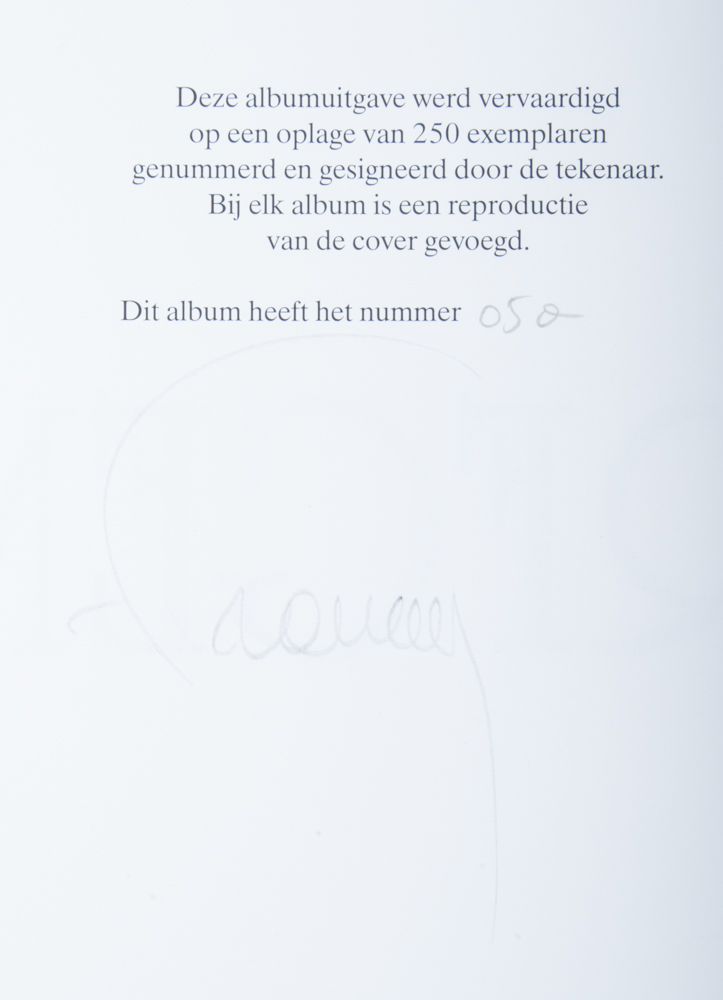 Deze albumuitgave werd vervaardigd
op een oplage van 250 exemplaren
genummerd en gesigneerd door de tekenaar.
Bij elk album is een reproductie
van de cover gevoegd.
Dit album heeft het nummer 050